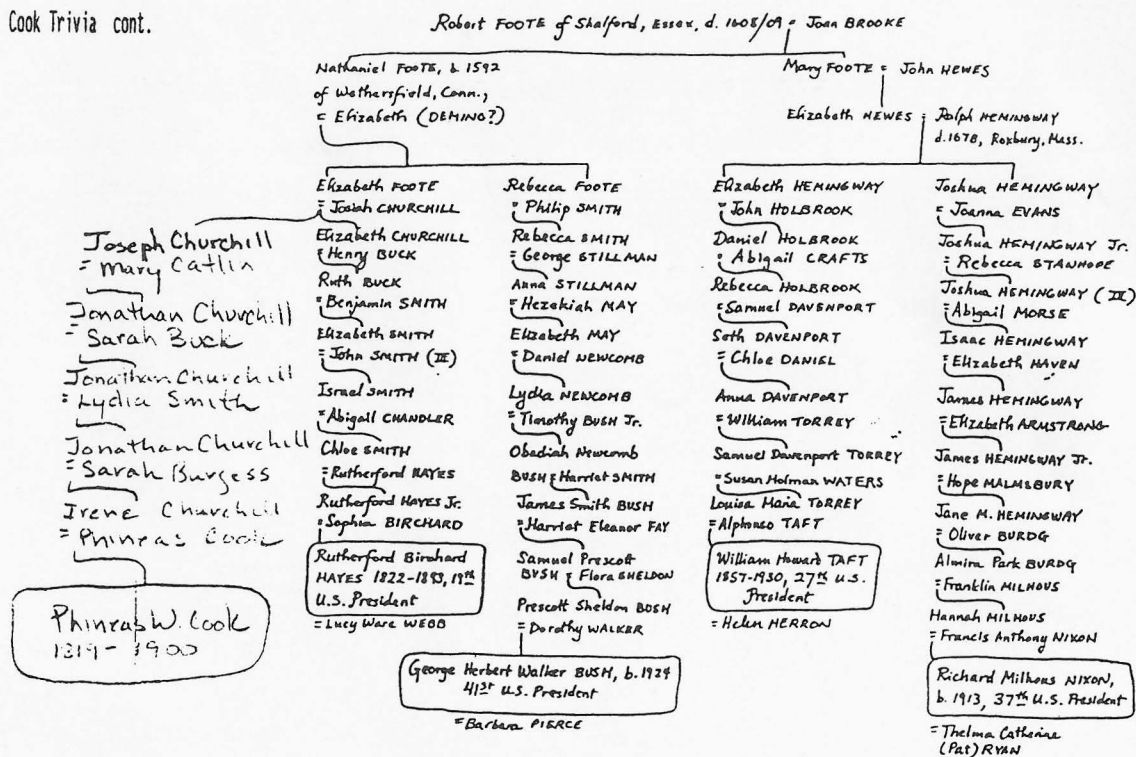 Cook Trivia cont.
Robert FOOTE of Shalford, Essex, d. 1608/09 = Joan BROOKE
Nathaniel FOOTE, b 1592
of Wethersfield, Conn.,
= Elizabeth (DEMING?)
Mary FOOTE = John HEWES
Elizabeth HEWES = Ralph HEMINGWAY
d.1678, Roxbury, Mass.
Joseph Churchill
= Mary Catlin
Jonathan Churchill
= Sarah Buck
Jonathan Churchill
= Lydia Smith
Jonathan Churchill
= Sarah Burgess
Irene Churchill
= Phineas Cook
Phineas W. Cook
1819-1900
Elizabeth FOOTE
= Josiah CHURCHILL
Elizabeth CHURCHILL
= Henry BUCK
Ruth BUCK
= Benjamin SMITH
Elizabeth SMITH
= John SMITH (III)
Israel SMITH
= Abigail CHANDLER
Chloe SMITH
= Rutherford HAYES
Rutherford HAYES Jr.
= Sophia BIRCHARD
Rutherford Birchard
HAYES 1822-1893, 19th
U.S. President
= Lucy Ware WEBB
Rebecca FOOTE
= Philip SMITH
Rebecca SMITH
= George STILLMAN
Anna STILLMAN
= Hezekiah MAY
Elizabeth MAY
= Daniel NEWCOMB
Lydia NEWCOMB
= Timothy BUSH Jr.
Obadiah Newcomb
BUSH = Harriet SMITH
James Smith BUSH
= Harriet Eleanor FAY
Samuel Prescott
BUSH = Flora SHELDON
Prescott Sheldon BUSH
= Dorothy WALKER
George Herbert Walker BUSH, b. 1924
41st U.S. President
= Barbara PIERCE
Elizabeth HEMINGWAY
= John HOLBROOK
Daniel HOLBROOK
= Abigail CRAFTS
Rebecca HOLBROOK
= Samuel DAVENPORT
Seth DAVENPORT
= Chloe DANIEL
Anna DAVENPORT
= William TORREY
Samuel Davenport TORREY
= Susan Holman WATERS
Louisa Maria TORREY
= Alphonso TAFT
William Howard TAFT
1857-1930, 27th U.S.
President
= Helen HERRON
Joshua HEMINGWAY
= Joanna EVANS
Joshua HEMINGWAY Jr.
= Rebecca STANHOPE
Joshua HEMINGWAY (III)
= Abigail MORSE
Isaac HEMINGWAY
= Elizabeth HAVEN
James HEMINGWAY
= Elizabeth ARMSTRONG
James HEMINGWAY Jr.
= Hope MALMSBURY
Jane M. HEMINGWAY
= Oliver BURDG
Almira Park BURDG
= Franklin MILHOUS
Hannah MILHOUS
= Francis Anthony NIXON
Richard Milhous NIXON,
b. 1913, 37th U.S. President
= Thelma Catherine
(Pat) RYAN